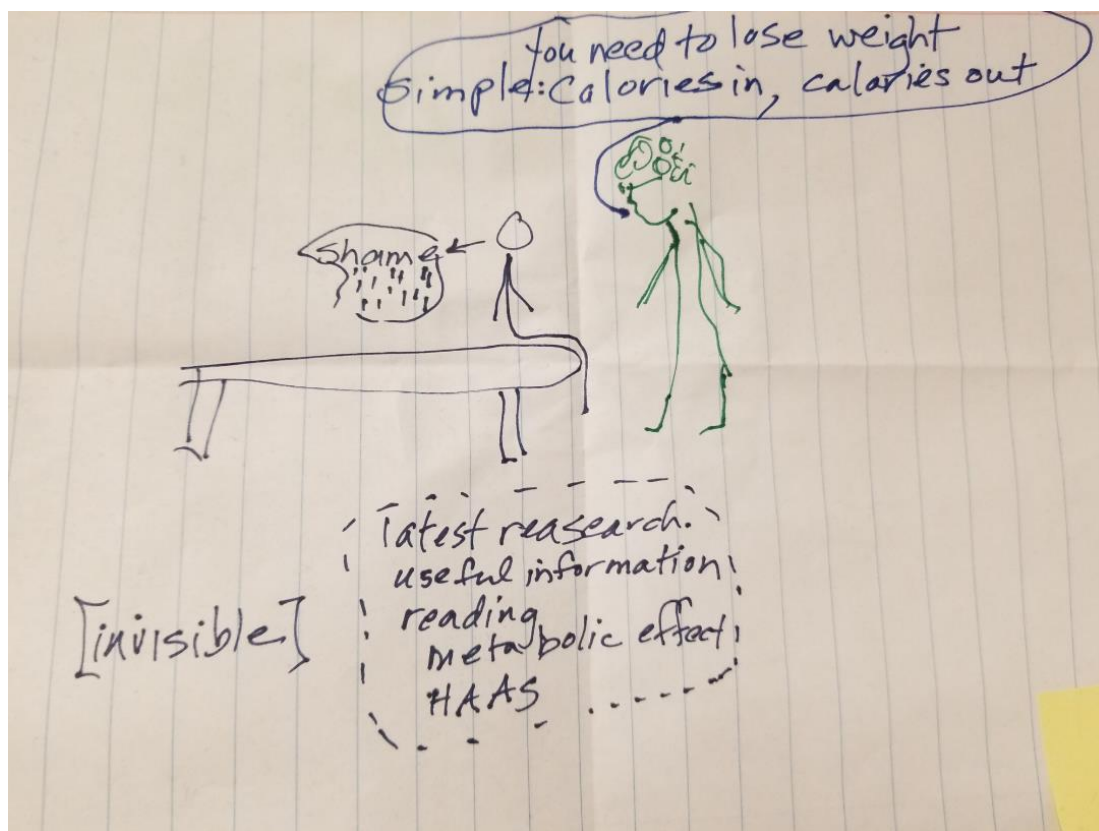 You need to lose weight
Simple: Calories in, calories out
Shame
latest reasearch.
useful information
reading
metabolic effect
HAAS
[invisible]